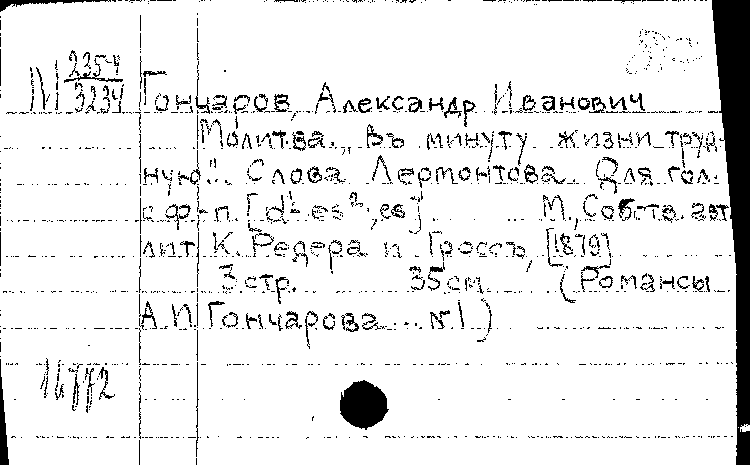 М 2354/3234
Гончаров, Александр Иванович
Молитва. „Въ минуту жизни труд-
ную". Слова Лермонтова. Для гол.
с ф-п. [d¹-es²; es] М., Собств. авт.
лит. К. Редера и Гроссъ, [1879]
3 стр. 35 см. (Романсы
А.И. Гончарова... №1)
16772